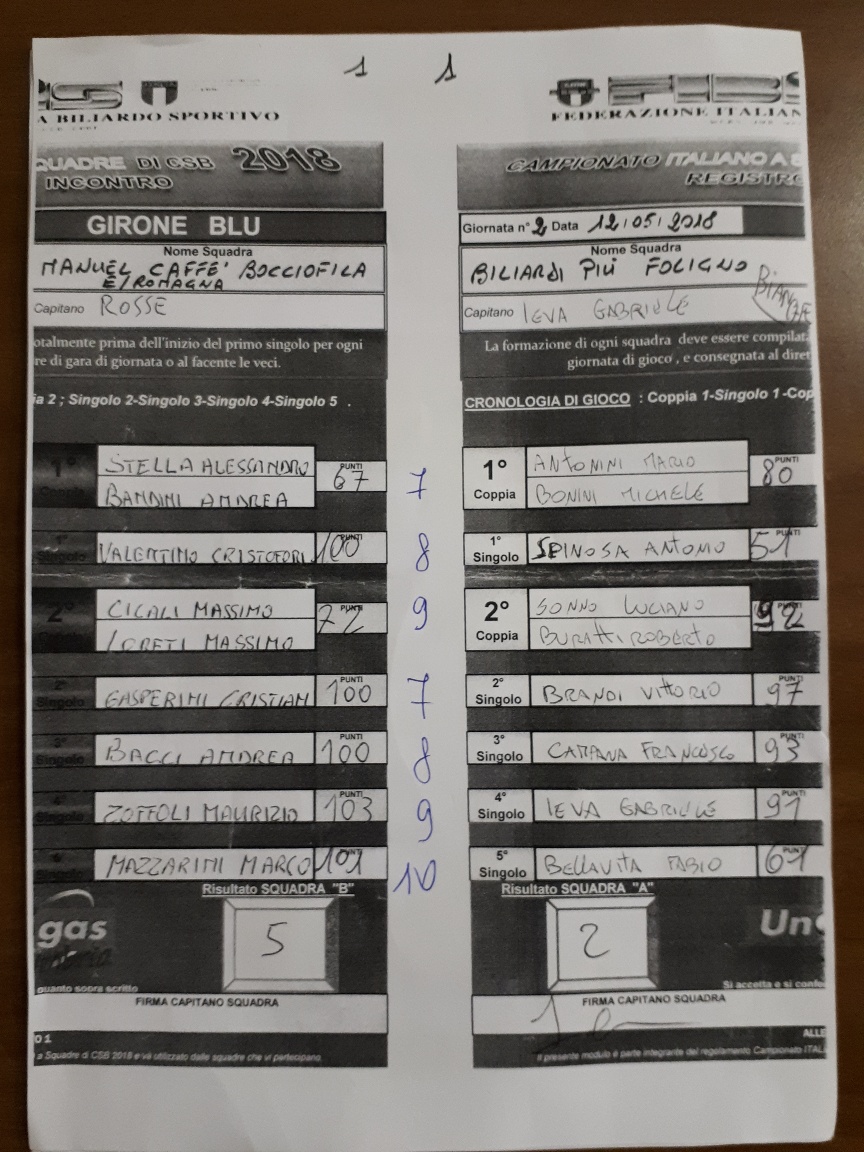 1 1
A BILIARDO SPORTIVO
QUADRE DI CSB 2018
INCONTRO
GIRONE BLU
Nome Squadra
MANUEL CAFFE' BOCCIOFILA
E/ROMAGNA
Capitano ROSSE
otalmente prima dell'inizio del primo singolo per ogni
re di gara di giornata o al facente le veci.
ia 2 ; Singolo 2-Singolo 3-Singolo 4-Singolo 5 .
1° STELLA ALESSANDRO PUNTI 67 7
BANDINI ANDREA
1° Singolo VALENTINO CRISTOFORI PUNTI 100 8
2° CICALI MASSIMO PUNTI 72 9
LORETI MASSIMO
2° Singolo GASPERINI CRISTIAN PUNTI 100 7
3° Singolo BACCI ANDREA PUNTI 100 8
4° Singolo ZOFFOLI MAURIZIO PUNTI 103 9
5° Singolo MAZZARINI MARCO PUNTI 101 10
Risultato SQUADRA "B"
gas
5
quanto sopra scritto
FIRMA CAPITANO SQUADRA
01
a Squadre di CSB 2018 e và utilizzato dalle squadre che vi partecipano.
FEDERAZIONE ITALIAN
CAMPIONATO ITALIANO A S
REGISTRO
Giornata n° 2 Data 12/05/2018
Nome Squadra
BILIARDI PIÙ FOLIGNO
BIANCHE
Capitano IEVA GABRIELE
La formazione di ogni squadra deve essere compilat
giornata di gioco , e consegnata al diret
CRONOLOGIA DI GIOCO : Coppia 1-Singolo 1-Cop
1° Coppia ANTONINI MARIO PUNTI 80
BONINI MICHELE
1° Singolo SPINOSA ANTONIO PUNTI 51
2° Coppia SONNO LUCIANO PUNTI 92
BURATTI ROBERTO
2° Singolo BRANDI VITTORIO PUNTI 97
3° Singolo CAMPANA FRANCESCO PUNTI 93
4° Singolo IEVA GABRIELE PUNTI 91
5° Singolo BELLAVITA FABIO PUNTI 61
Risultato SQUADRA "A"
2
Un
Si accetta e si confe
FIRMA CAPITANO SQUADRA
ALLE
Il presente modulo è parte integrante del regolamento Campionato ITAL